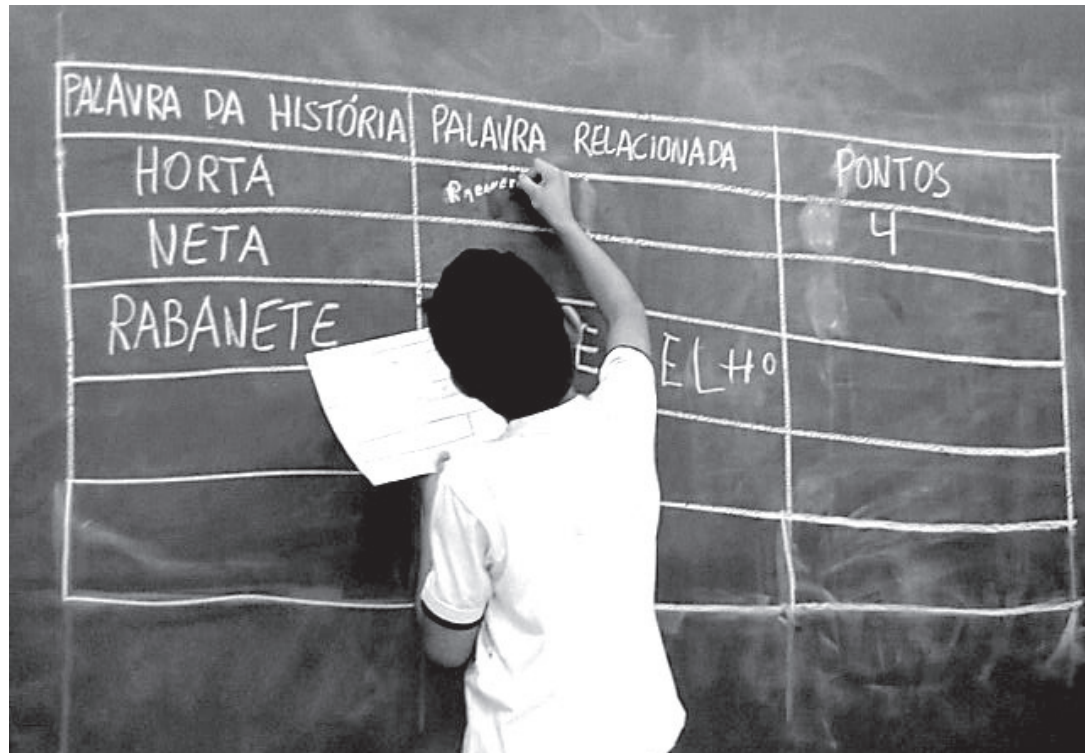 PALAVRA DA HISTÓRIA PALAVRA RELACIONADA PONTOS
HORTA 4
NETA
RABANETE E ELHO